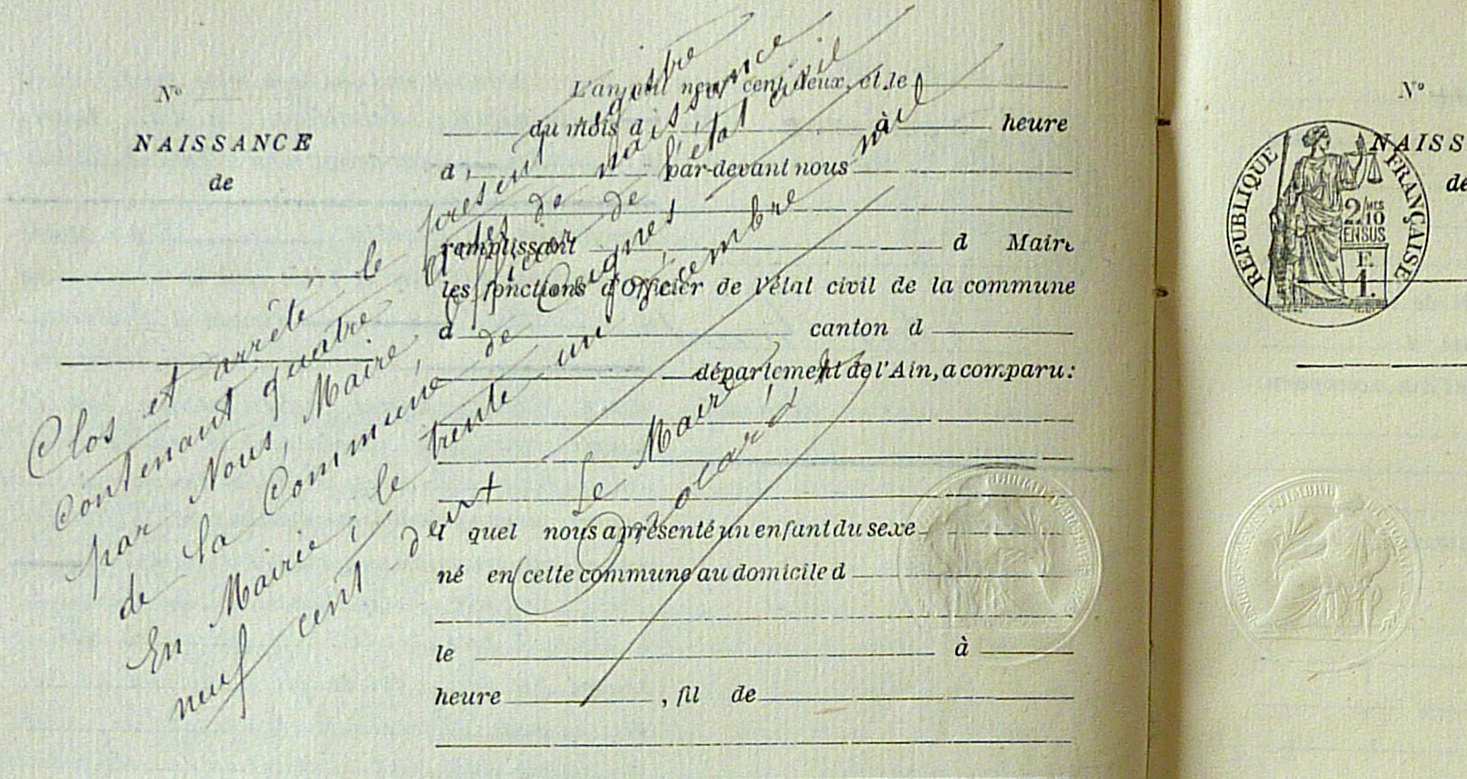 N°
NAISSANCE
de
L'an mil neuf cent deux, et le
du mois d à heure
à par-devant nous
remplissant d Maire
les fonctions d'Officier de l'état civil de la commune
d canton d
département de l'Ain, a comparu:
l quel nous a présenté un enfant du sexe
né en cette commune au domicile d
le à
heure , fil de
Clos et arrêté, le présent registre
contenant quatre actes de naissance
par Nous, Maire, officier de l'état civil
de la Commune de Ceignes
En Mairie, le trente un décembre mil
neuf cent deux
Le Maire,
N°
NAISS
de
REPUBLIQUE FRANÇAISE
2/10
EN SUS
F.
1.